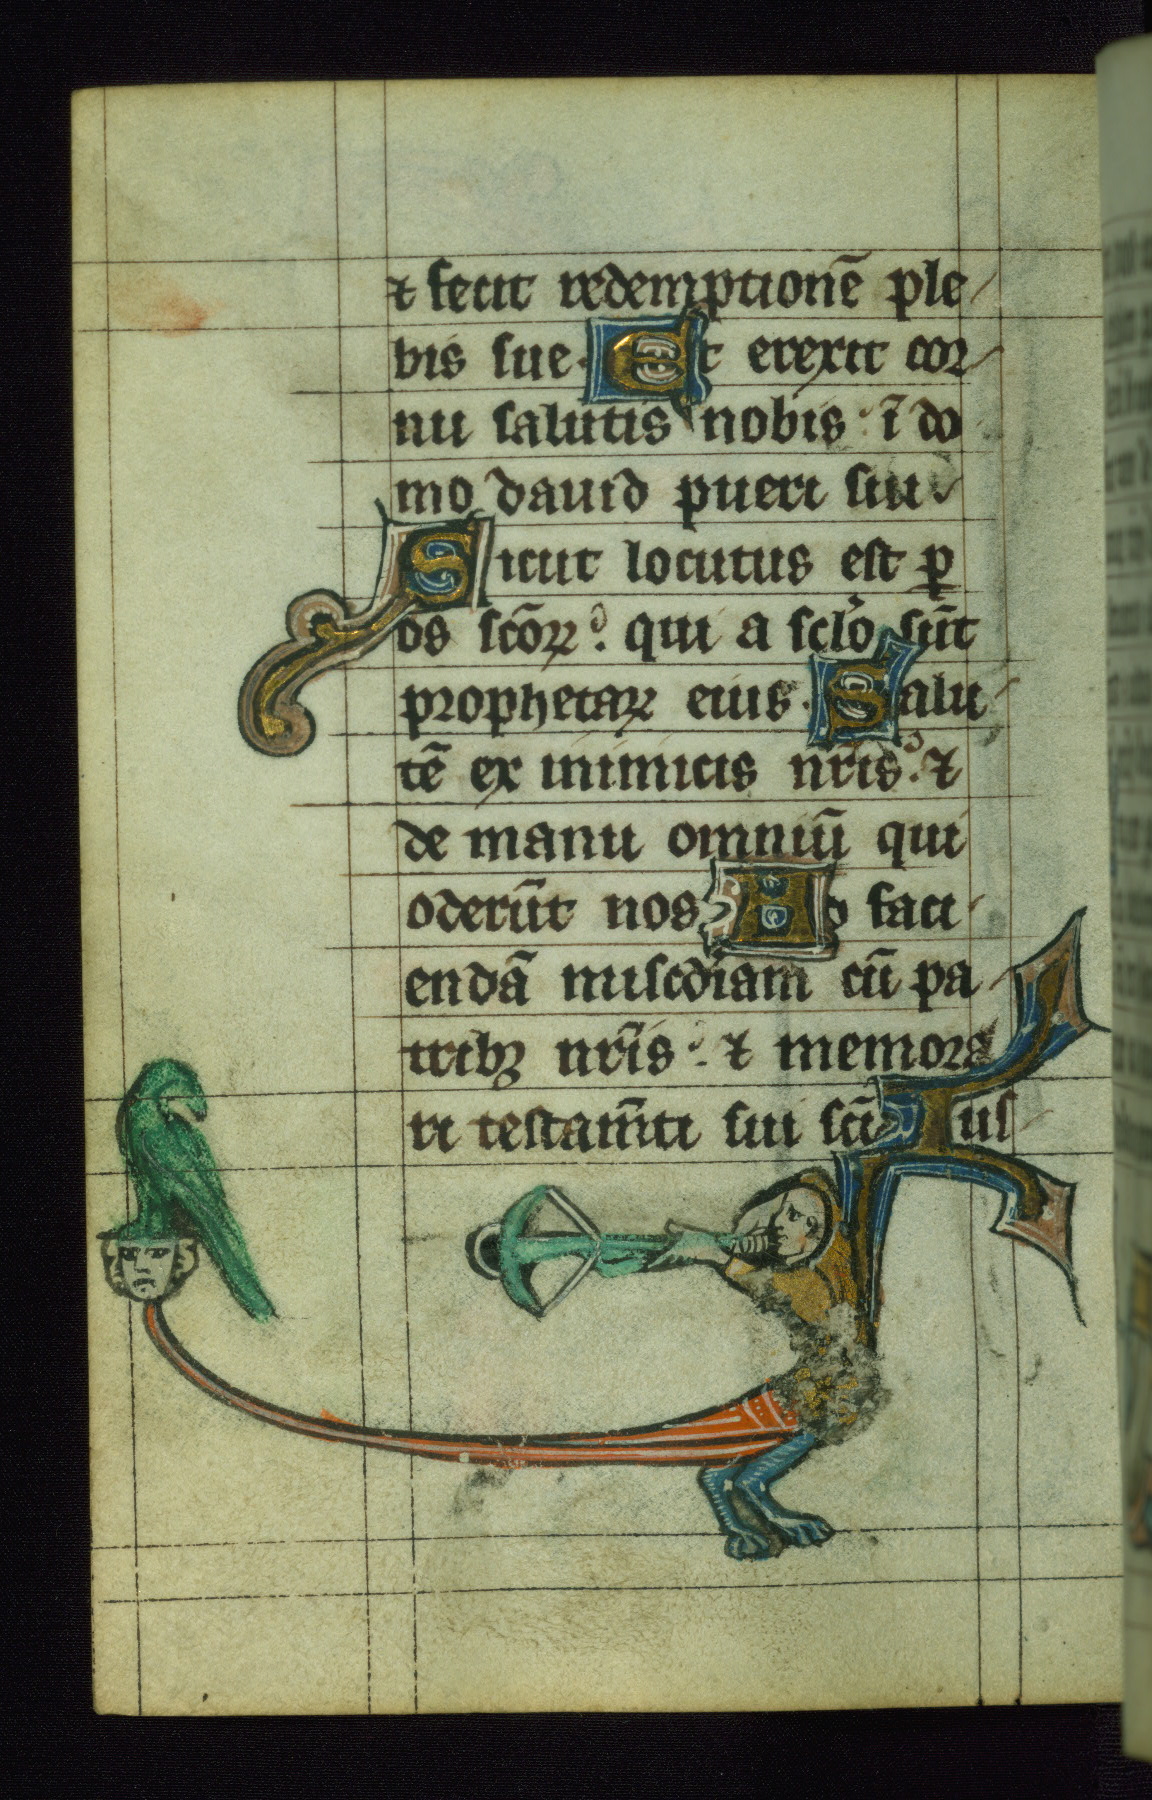 ⁊ fecit redemptionē ple
bis sue. Et erexit cor
nu salutis nobis ī do
mo dauid pueri sui.
Sicut locutus est ꝑ
os sc̄oꝝ. qui a sclo sūt
prophetaꝝ eius. Salu
tē ex inimicis nr̄is. ⁊
de manu omniū qui
oderūt nos Ad faci
endā mis̄cdiam cū pa
tribꝫ nr̄is. ⁊ memora
ri testam̄ti sui sc̄i Ius